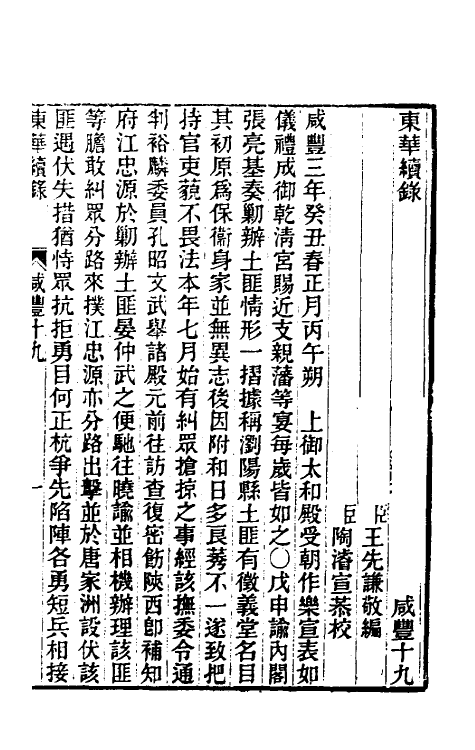 東華續錄　咸豐十九
臣王先謙敬編
臣陶濬宣恭校
咸豐三年癸丑春正月丙午朔　上御太和殿受朝作樂宣表如
儀禮成御乾清宮賜近支親藩等宴每歲皆如之〇戊申諭內閣
張亮基奏勦辦土匪情形一摺據稱瀏陽縣土匪有徵義堂名目
其初原爲保衞身家並無異志後因附和日多良莠不一遂致把
持官吏藐不畏法本年七月始有糾眾搶掠之事經該撫委令通
判裕麟委員孔昭文武舉諸殿元前往訪查復密飭陝西卽補知
府江忠源於勦辦土匪晏仲武之便馳往曉諭並相機辦理該匪
等膽敢糾眾分路來撲江忠源亦分路出擊並於唐家洲設伏該
匪遇伏失措猶恃眾抗拒勇目何正杭爭先陷陣各勇短兵相接
東華續錄　咸豐十九　一